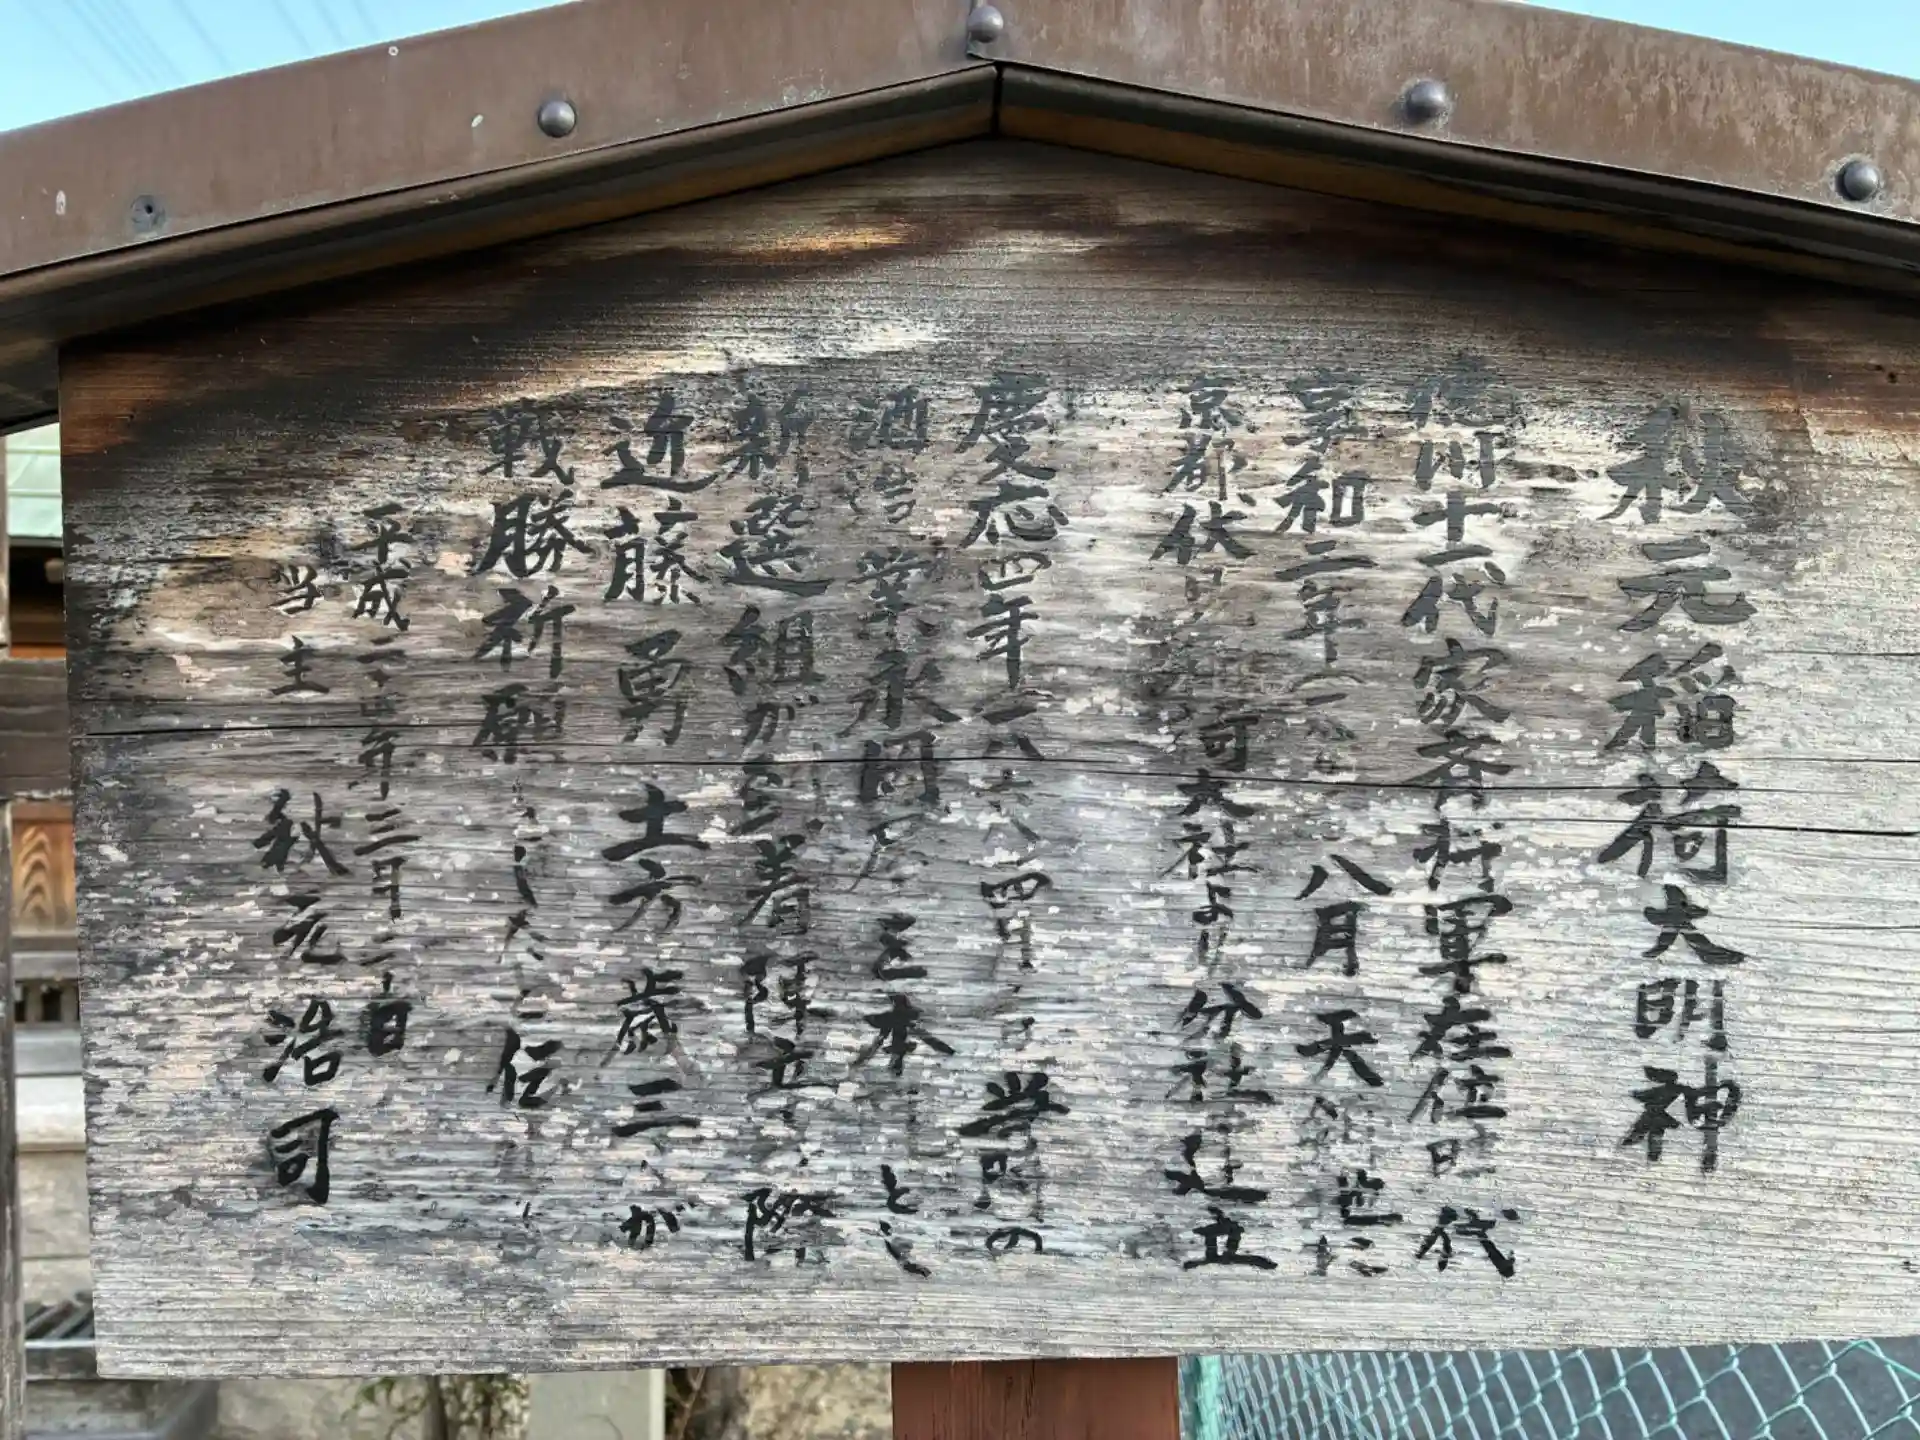 秋元稲荷大明神
徳川十一代家斉将軍在位時代
享和二年 八月 天 世に
京都伏 荷大社より分社建立
慶応四年 一八六八 四月 当時の
酒造業永岡屋 を本 とし
新選組が到着陣立 際
近藤勇 土方歳三 が
戦勝祈願 したと伝
平成二十四年三月二十日
当主 秋元浩司